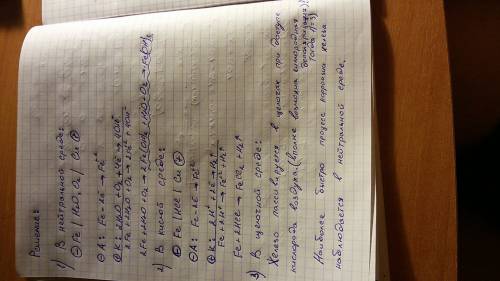 Решение:
1) В нейтральной среде:
⊖ Fe | H2O, O2 | Cu ⊕
⊖ A: Fe - 2e → Fe²⁺
⊕ K: 2H2O + O2 + 4e → 4OH⁻
2Fe + 2H2O + O2 → 2Fe²⁺ + 4OH⁻
2Fe + 2H2O + O2 → 2Fe(OH)2
2) В кислой среде:
⊖ Fe | HCl | Cu ⊕
⊖ A: Fe - 2e → Fe²⁺
⊕ K: 2H⁺ + 2e → H2↑
Fe + 2H⁺ → Fe²⁺ + H2↑
Fe + 2HCl → FeCl2 + H2↑
3) В щелочной среде:
Железо пассивируется в щелочах при доступе
кислорода воздуха. (вполне возможна
тогда
Наиболее быстро процесс коррозии железа
наблюдается в нейтральной среде.